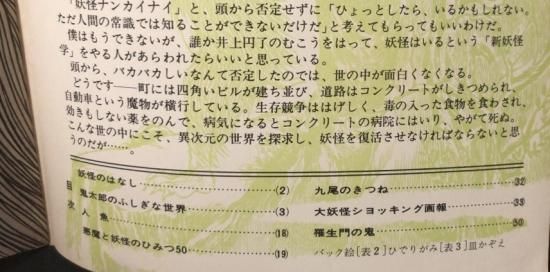 「妖怪ナンカイナイ」と、頭から否定せずに「ひょっとしたら、いるかもしれない。
ただ人間の常識では知ることができないだけだ」と考えてもらってもいいわけだ。
僕はもうできないが、誰か井上円了のむこうをはって、妖怪はいるという「新妖怪
学」をやる人があらわれたらいいと思っている。
頭から、バカバカしいなんて否定したのでは、世の中が面白くなくなる。
どうです――町には四角いビルが建ち並び、道路はコンクリートがしきつめられ、
自動車という魔物が横行している。生存競争ははげしく、毒の入った食物を食わされ、
効きもしない薬をのんで、病気になるとコンクリートの病院にはいり、やがて死ぬ。
こんな世の中にこそ、異次元の世界を探求し、妖怪を復活させなければならないと思
うのだが……。
目次
妖怪のはなし (2)
鬼太郎のふしぎな世界 (3)
人魚 (18)
悪魔と妖怪のひみつ50 (19)
九尾のきつね 32
大妖怪ショッキング画報 33
羅生門の鬼 50
バック絵[表2]ひでりがみ[表3]皿かぞえ